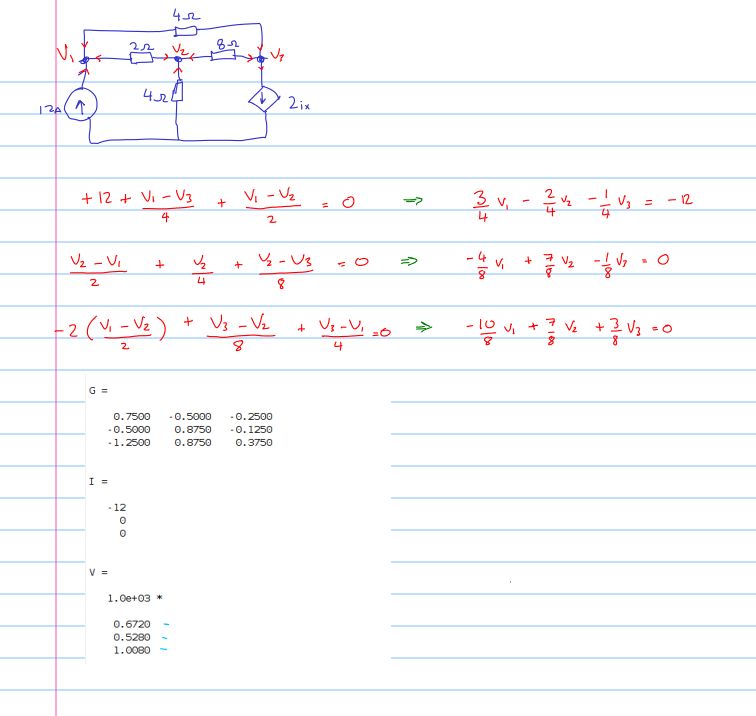 4Ω
V₁ 2Ω V₂ 8Ω V₃
12A 4Ω 2ix
+12 + (V₁ - V₃)/4 + (V₁ - V₂)/2 = 0 ⇒ 3/4 V₁ - 2/4 V₂ - 1/4 V₃ = -12
(V₂ - V₁)/2 + V₂/4 + (V₂ - V₃)/8 = 0 ⇒ -4/8 V₁ + 7/8 V₂ - 1/8 V₃ = 0
-2 ((V₁ - V₂)/2) + (V₃ - V₂)/8 + (V₃ - V₁)/4 = 0 ⇒ -10/8 V₁ + 7/8 V₂ + 3/8 V₃ = 0
G =
0.7500 -0.5000 -0.2500
-0.5000 0.8750 -0.1250
-1.2500 0.8750 0.3750
I =
-12
0
0
V =
1.0e+03 *
0.6720
0.5280
1.0080